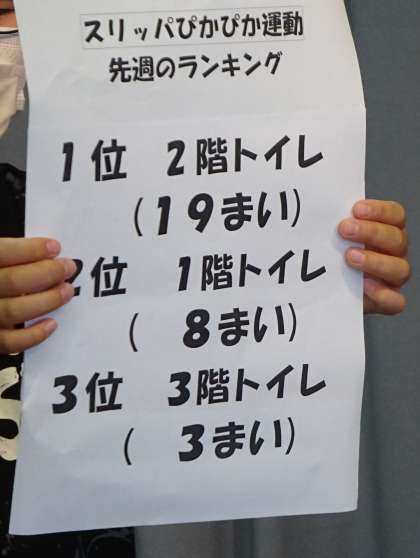 スリッパぴかぴか運動
先週のランキング
1位 2階トイレ
(19まい)
2位 1階トイレ
( 8まい)
3位 3階トイレ
( 3まい)